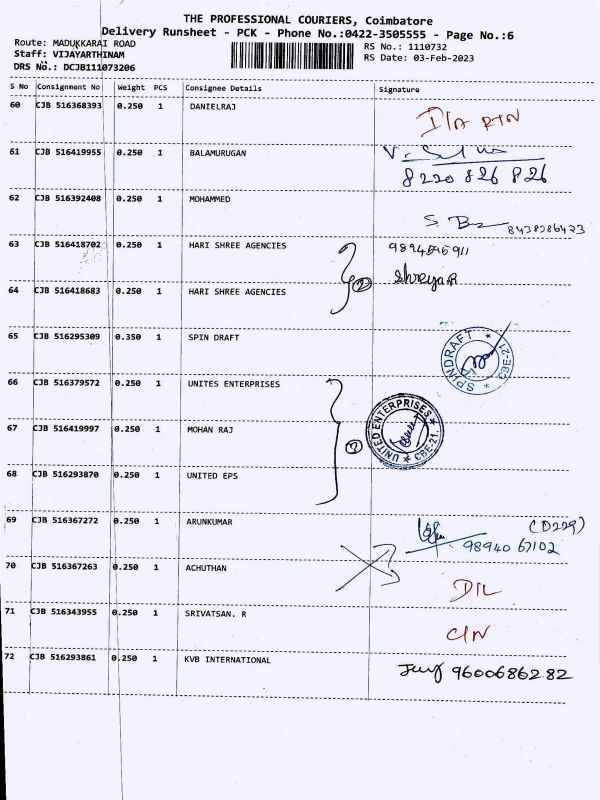 THE PROFESSIONAL COURIERS, Coimbatore
Delivery Runsheet - PCK - Phone No.:0422-3505555 - Page No.:6
Route: MADUKKARAI ROAD
Staff: VIJAYARTHINAM
DRS No.: DCJB111073206
RS No.: 1110732
RS Date: 03-Feb-2023
S No Consignment No Weight PCS Consignee Details Signature
60 CJB 516368393 0.250 1 DANIELRAJ
61 CJB 516419955 0.250 1 BALAMURUGAN
8220 826 826
62 CJB 516392408 0.250 1 MOHAMMED
63 CJB 516418702 0.250 1 HARI SHREE AGENCIES
64 CJB 516418683 0.250 1 HARI SHREE AGENCIES
65 CJB 516295309 0.350 1 SPIN DRAFT
SPINDRAFT CBE-21
66 CJB 516379572 0.250 1 UNITES ENTERPRISES
67 CJB 516419997 0.250 1 MOHAN RAJ
UNITED ENTERPRISES CBE-21.
68 CJB 516293870 0.250 1 UNITED EPS
69 CJB 516367272 0.250 1 ARUNKUMAR
(D229)
98940 67102
70 CJB 516367263 0.250 1 ACHUTHAN
D/L
71 CJB 516343955 0.250 1 SRIVATSAN. R
C/N
72 CJB 516293861 0.250 1 KVB INTERNATIONAL
9600686282